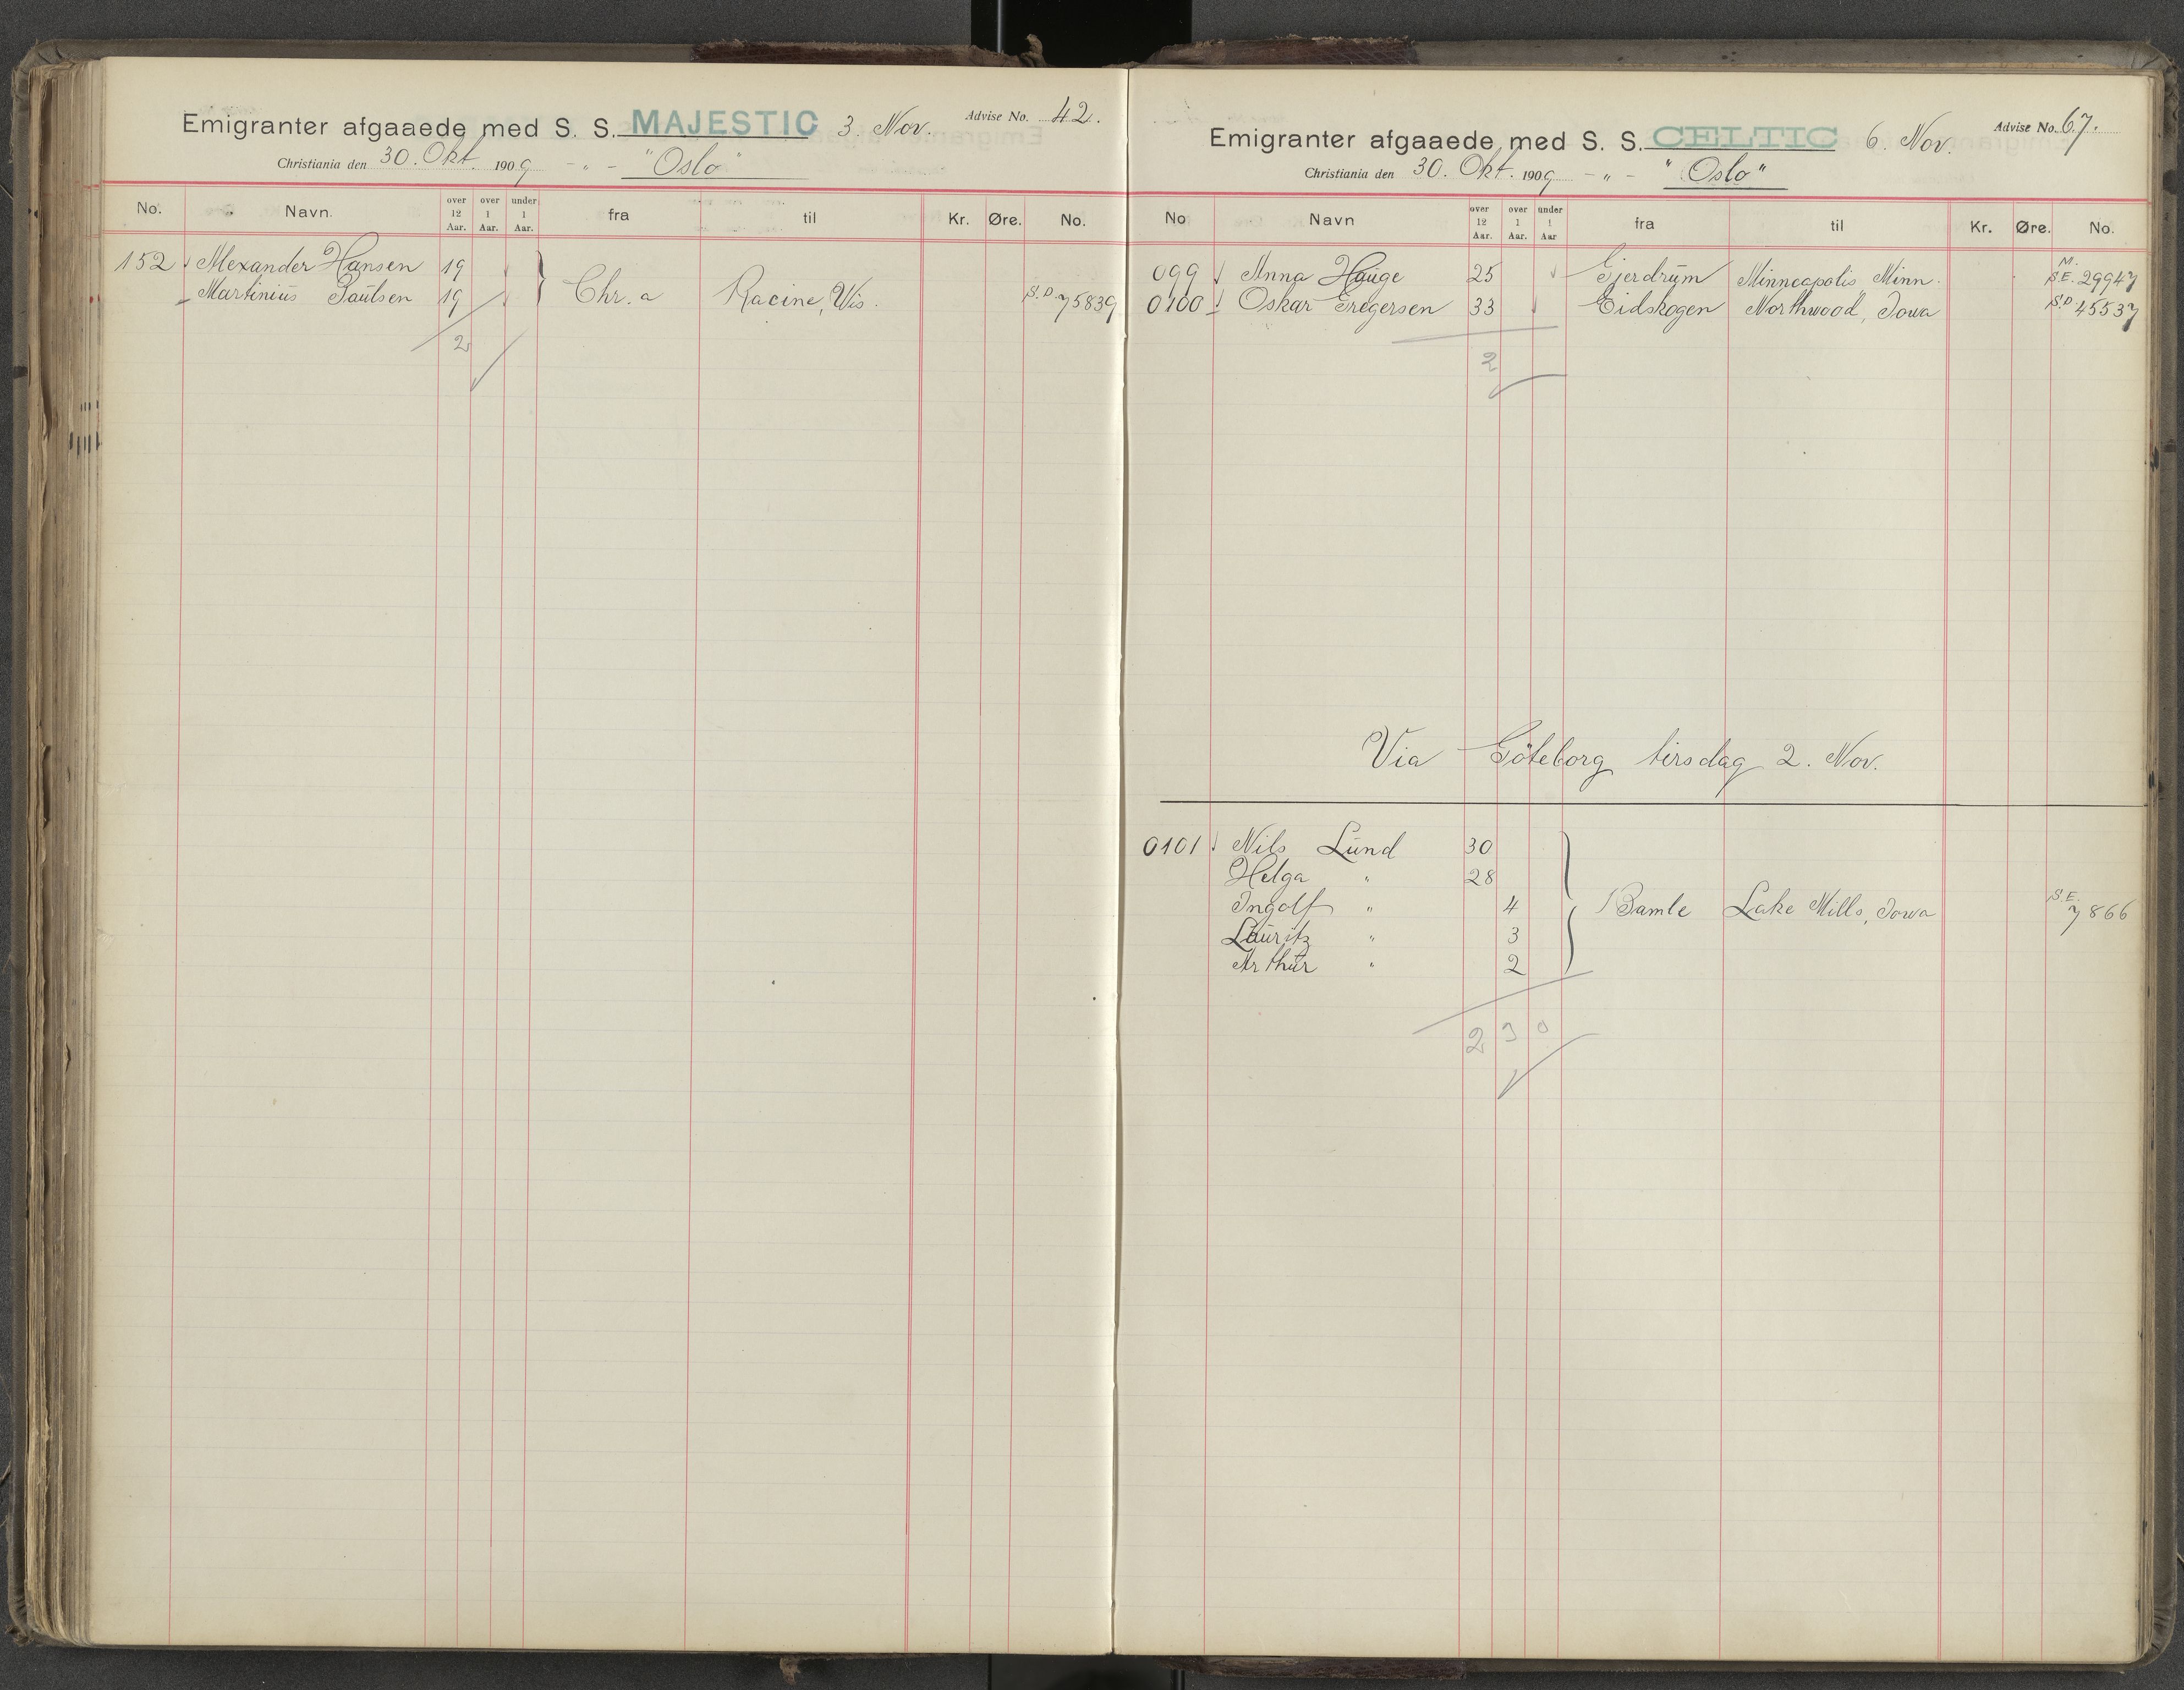 Emigranter afgaaede med S. S. MAJESTIC 3. Nov. Advise No. 42.
Christiania den 30. Okt. 1909 - " - "Oslo"
No. Navn. over 12 Aar. over 1 Aar. under 1 Aar. fra til Kr. Øre. No.
152 Alexander Hansen 19
Martinius Paulsen 19 Chr.a Racine, Wis. S.D. 75839
2
Emigranter afgaaede med S. S. CELTIC 6. Nov. Advise No. 67.
Christiania den 30. Okt. 1909 - " - "Oslo"
No Navn over 12 Aar. over 1 Aar. under 1 Aar fra til Kr. Øre. No.
099 Anna Hauge 25 Gjerdrum Minneapolis, Minn. M. S.E. 29947
0100 Oskar Gregersen 33 Eidskogen Northwood, Iowa S.D. 45537
2
Via Göteborg tirsdag 2. Nov.
0101 Nils Lund 30
Helga " 28
Ingolf " 4 Bamle Lake Mills, Iowa S.E. 7866
Lauritz " 3
Arthur " 2
2 3 0